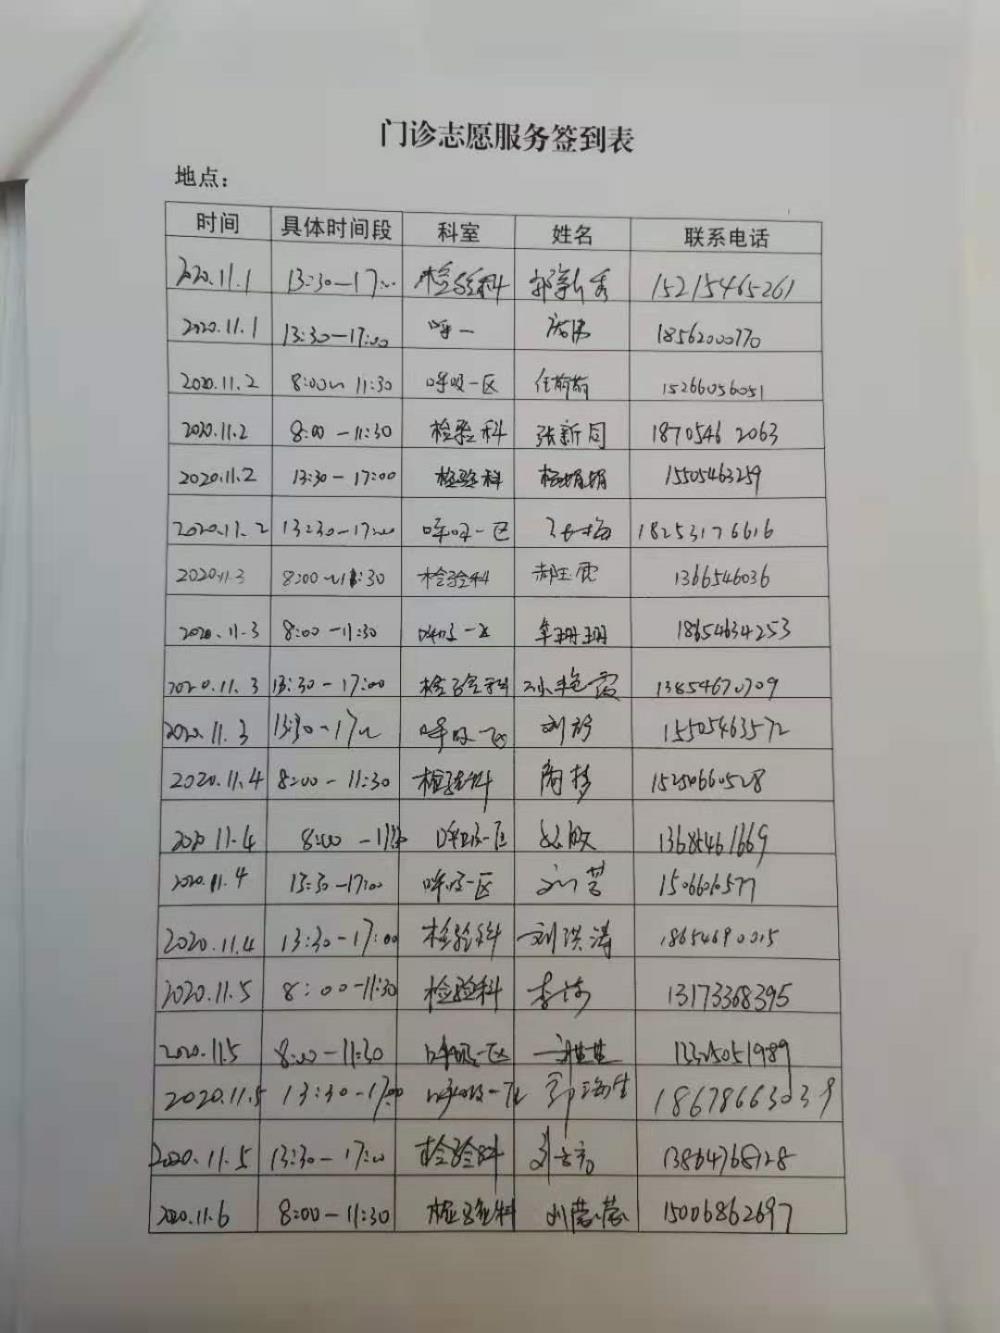 门诊志愿服务签到表
地点：
时间 具体时间段 科室 姓名 联系电话
2020.11.1 13:30—17:00 检验科 郭新秀 15215465261
2020.11.1 13:30—17:00 呼一 18562000770
2020.11.2 8:00~11:30 呼吸一区 任前前 15266056051
2020.11.2 8:00—11:30 检验科 张新同 18705462063
2020.11.2 13:30—17:00 检验科 杨娟娟 15505463259
2020.11.2 13:30—17:00 呼吸一区 张梅 18253176616
2020.11.3 8:00~11:30 检验科 1366546036
2020.11.3 8:00—11:30 呼吸一区 牟珊珊 18654634253
2020.11.3 13:30—17:00 检验科 孙艳霞 13854670709
2020.11.3 13:30-17 呼吸一区 15505463572
2020.11.4 8:00—11:30 检验科 周杉 15250660528
2020.11.4 8:00 呼吸一区 13685461669
2020.11.4 13:30—17:00 呼吸一区 刘营 1506606577
2020.11.4 13:30-17:00 检验科 刘洪涛 18654690015
2020.11.5 8:00-11:30 检验科 13173368395
2020.11.5 8:00—11:30 呼吸一区
2020.11.5 13:30-17:00 呼吸一区 郭海生 18678663039
2020.11.5 13:30—17:00 检验科 13864768128
2020.11.6 8:00—11:30 检验科 刘蕊蕊 15006862697